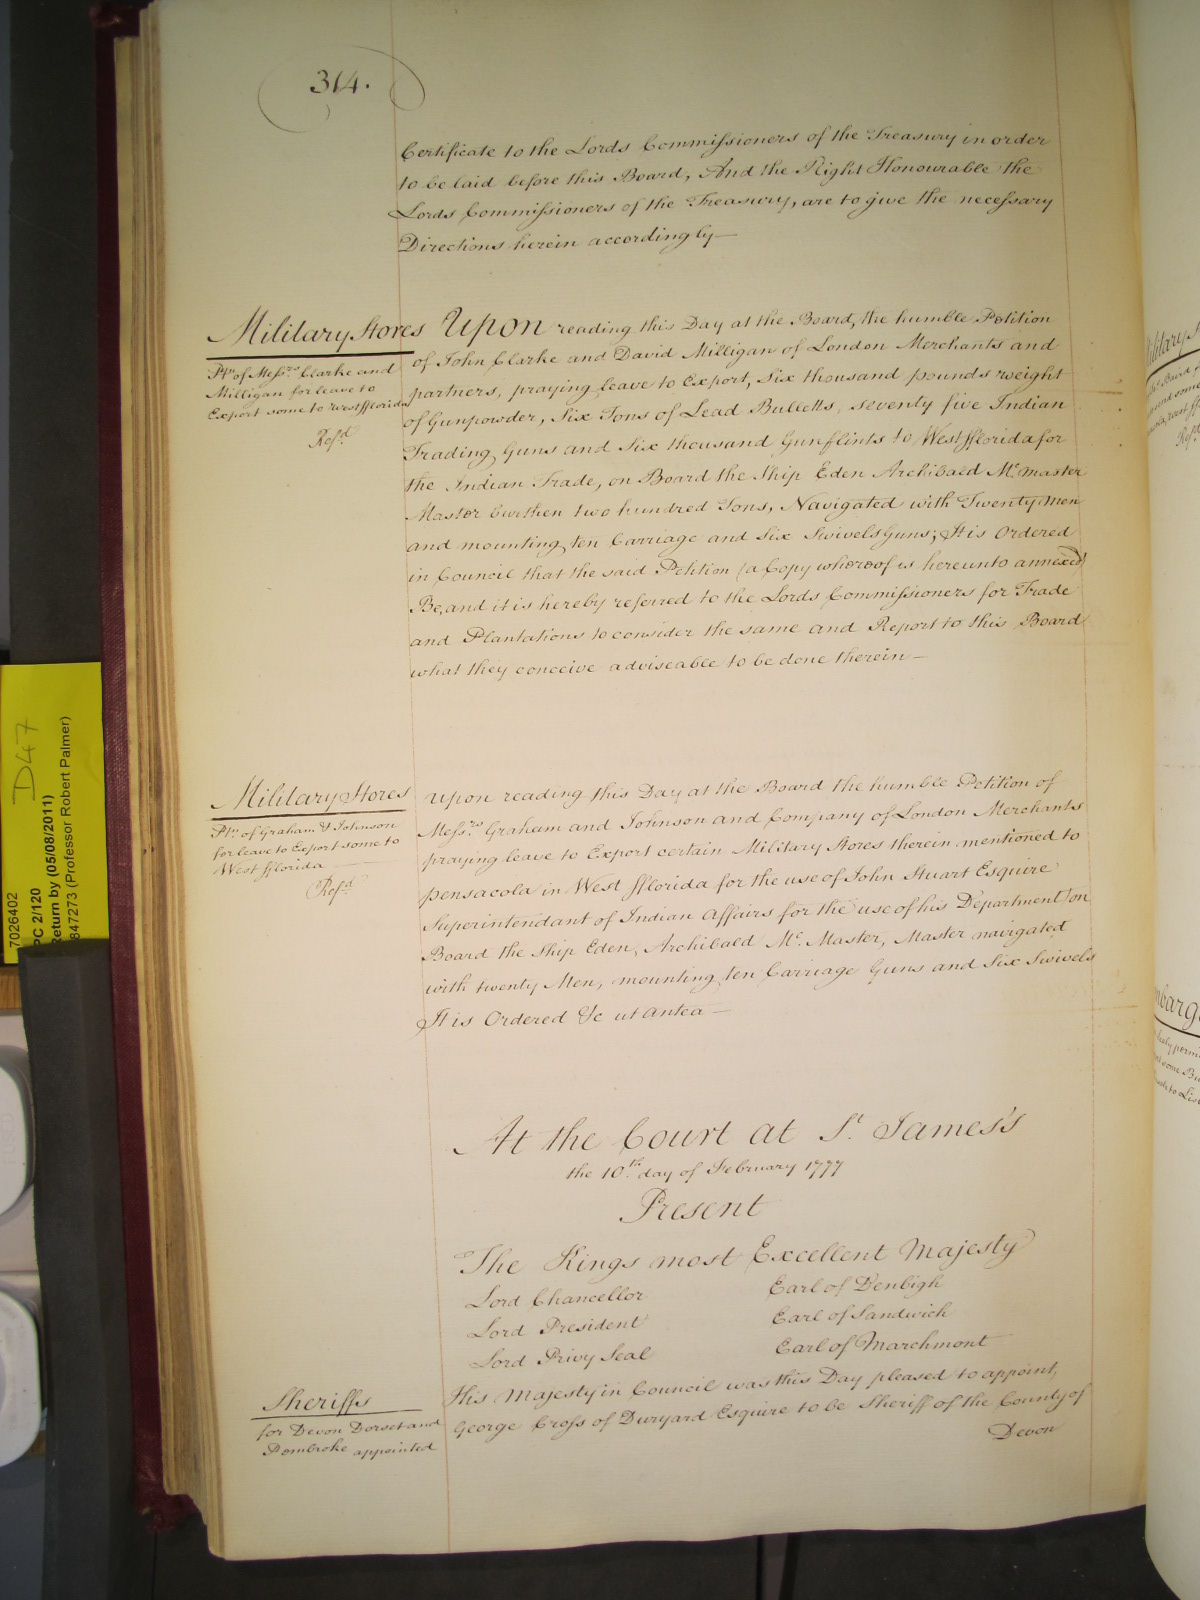 314.
Certificate to the Lords Commissioners of the Treasury in order
to be laid before this Board, And the Right Honourable the
Lords Commissioners of the Treasury, are to give the necessary
Directions herein accordingly—
Military Stores
Ptn. of Messrs. Clarke and
Milligan for leave to
Export some to West fflorida
Refd.
Upon reading this Day at the Board, the humble Petition
of John Clarke and David Milligan of London Merchants and
partners, praying leave to Export, Six thousand pounds weight
of Gunpowder, Six Tons of Lead Bulletts, seventy five Indian
Trading Guns and Six thousand Gunflints to West fflorida for
the Indian Trade, on Board the Ship Eden Archibald Mc. master
Master burthen two hundred Tons, Navigated with Twenty Men
and mounting ten Carriage and Six Swivels Guns; It is Ordered
in Council that the said Petition (a Copy whereof is hereunto annexed)
Be, and it is hereby referred to the Lords Commissioners for Trade
and Plantations to consider the same and Report to this Board
what they conceive adviseable to be done therein—
Military Stores
Ptn. of Graham & Johnson
for leave to Export some to
West fflorida
Refd.
Upon reading this Day at the Board the humble Petition of
Messrs. Graham and Johnson and Company of London Merchants
praying leave to Export certain Military Stores therein mentioned to
pensacola in West fflorida for the use of John Stuart Esquire
Superintendant of Indian Affairs for the use of his Department on
Board the Ship Eden, Archibald Mc. Master, Master navigated
with twenty Men, mounting ten Carriage Guns and Six Swivels
It is Ordered &c ut antea—
At the Court at St. James's
the 10th. day of February 1777
Present
The Kings most Excellent Majesty
Lord Chancellor Earl of Denbigh
Lord President Earl of Sandwich
Lord Privy Seal Earl of Marchmont
Sheriffs
for Devon Dorset and
Pembroke appointed
His Majesty in Council was this Day pleased to appoint,
George Cross of Duryard Esquire to be Sheriff of the County of
Devon
D47
7026402
PC 2/120
Return by (05/08/2011)
847273 (Professor Robert Palmer)